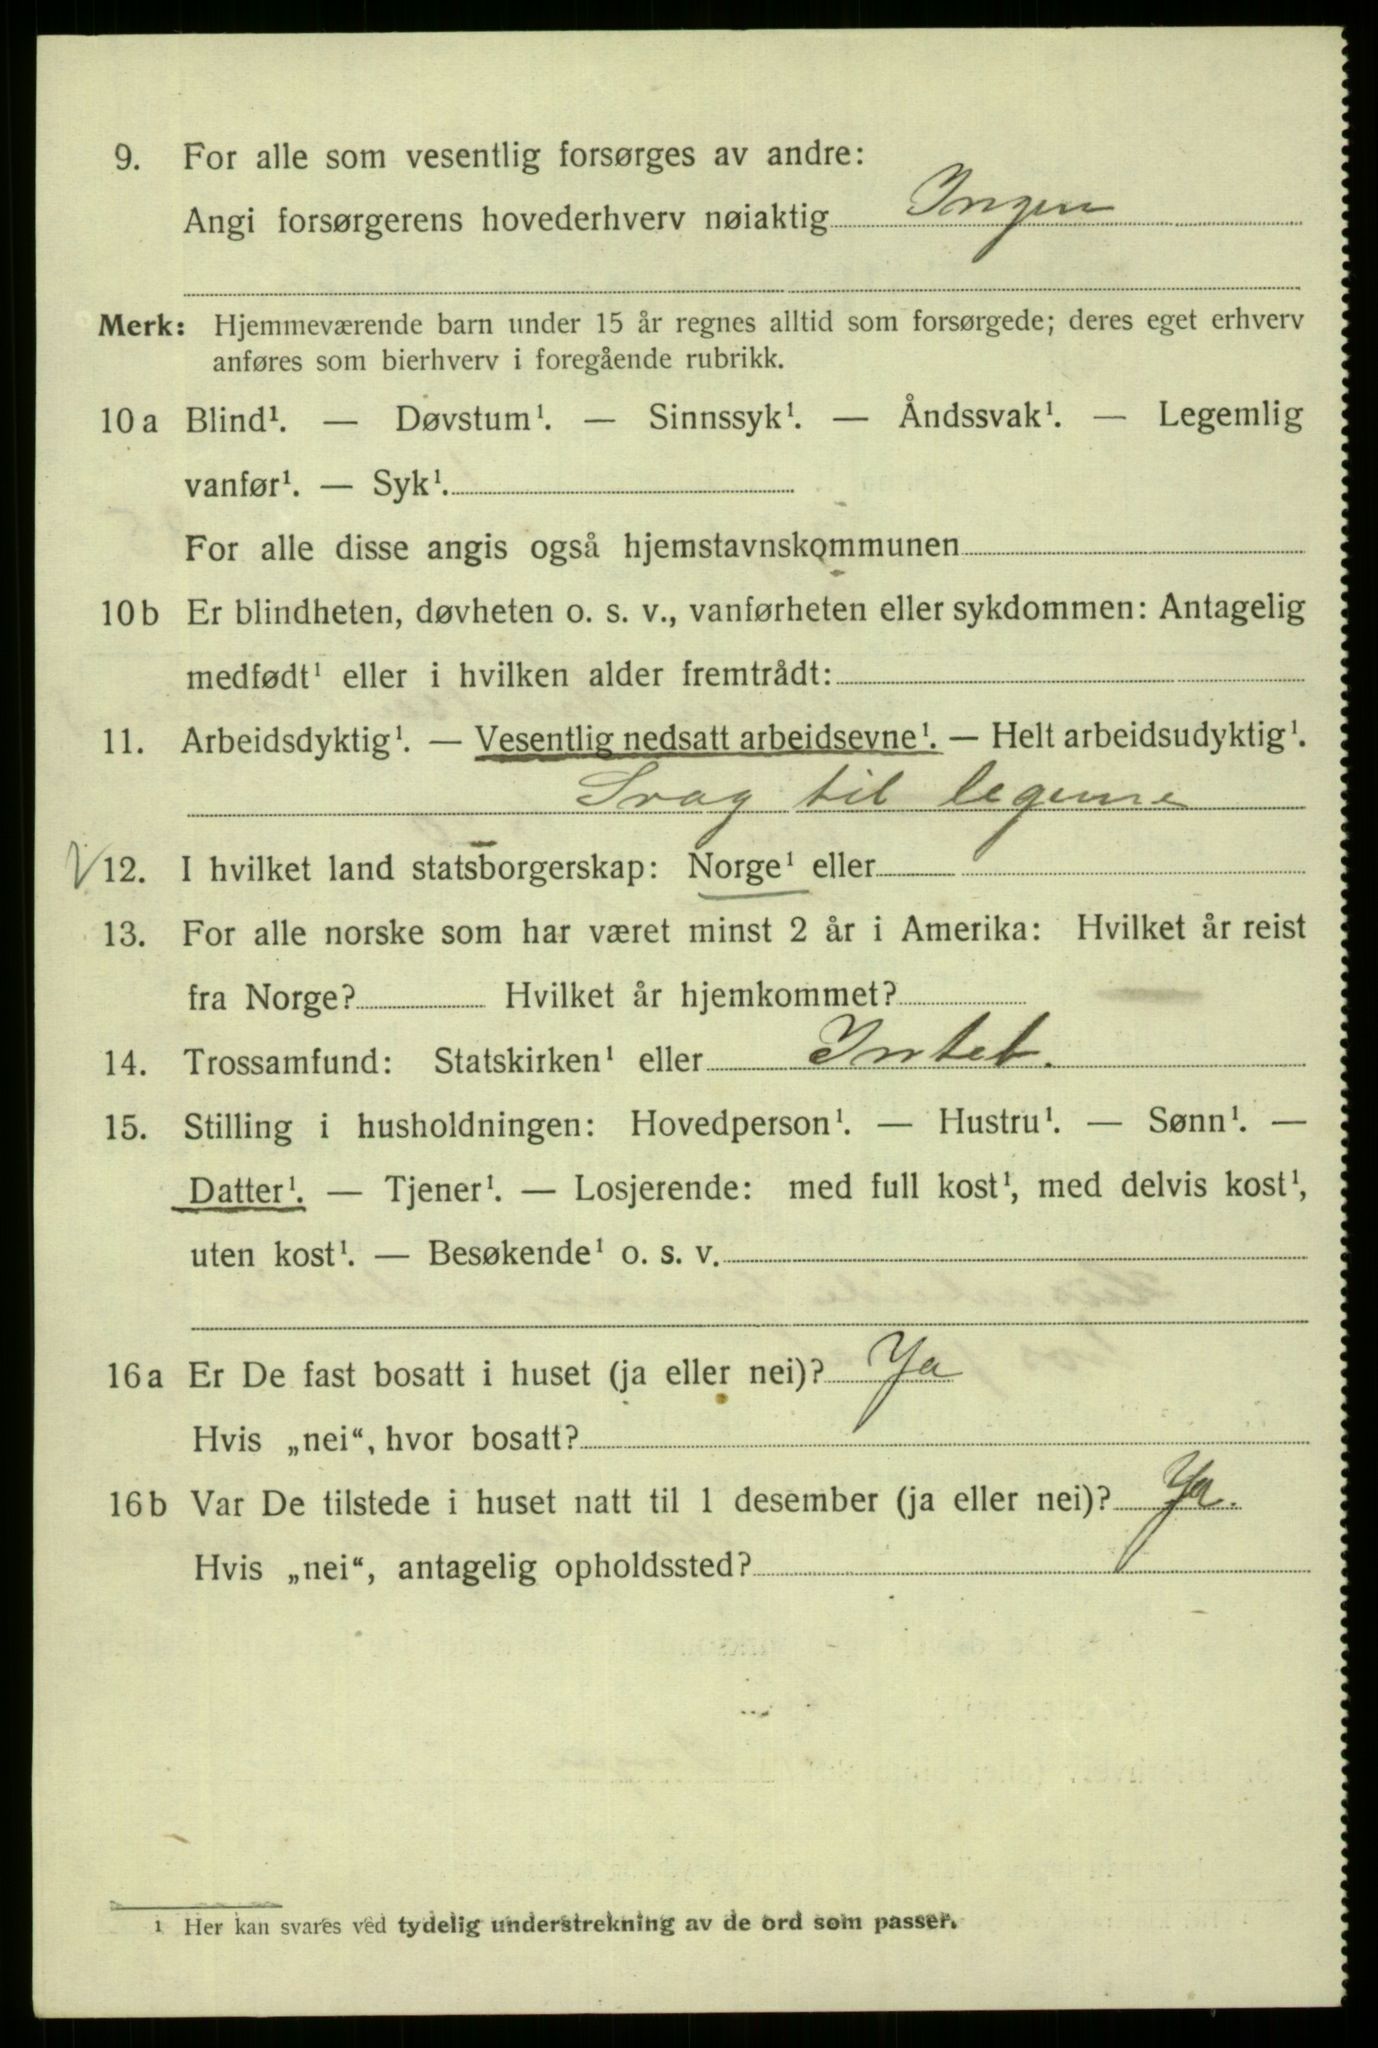 9. For alle som vesentlig forsørges av andre:
Angi forsørgerens hovederhverv nøiaktig Ingen
Merk: Hjemmeværende barn under 15 år regnes alltid som forsørgede; deres eget erhverv
anføres som bierhverv i foregående rubrikk.
10 a Blind¹. — Døvstum¹. — Sinnssyk¹. — Åndssvak¹. — Legemlig
vanfør¹. — Syk¹.
For alle disse angis også hjemstavnskommunen
10 b Er blindheten, døvheten o. s. v., vanførheten eller sykdommen: Antagelig
medfødt¹ eller i hvilken alder fremtrådt:
11. Arbeidsdyktig¹. — Vesentlig nedsatt arbeidsevne¹. — Helt arbeidsudyktig¹.
Svag til legeme
V 12. I hvilket land statsborgerskap: Norge¹ eller
13. For alle norske som har været minst 2 år i Amerika: Hvilket år reist
fra Norge? Hvilket år hjemkommet? —
14. Trossamfund: Statskirken¹ eller Intet.
15. Stilling i husholdningen: Hovedperson¹. — Hustru¹. — Sønn¹. —
Datter¹. — Tjener¹. — Losjerende: med full kost¹, med delvis kost¹,
uten kost¹. — Besøkende¹ o. s. v.
16 a Er De fast bosatt i huset (ja eller nei)? Ja
Hvis „nei“, hvor bosatt?
16 b Var De tilstede i huset natt til 1 desember (ja eller nei)? Ja.
Hvis „nei“, antagelig opholdssted?
1 Her kan svares ved tydelig understrekning av de ord som passer.